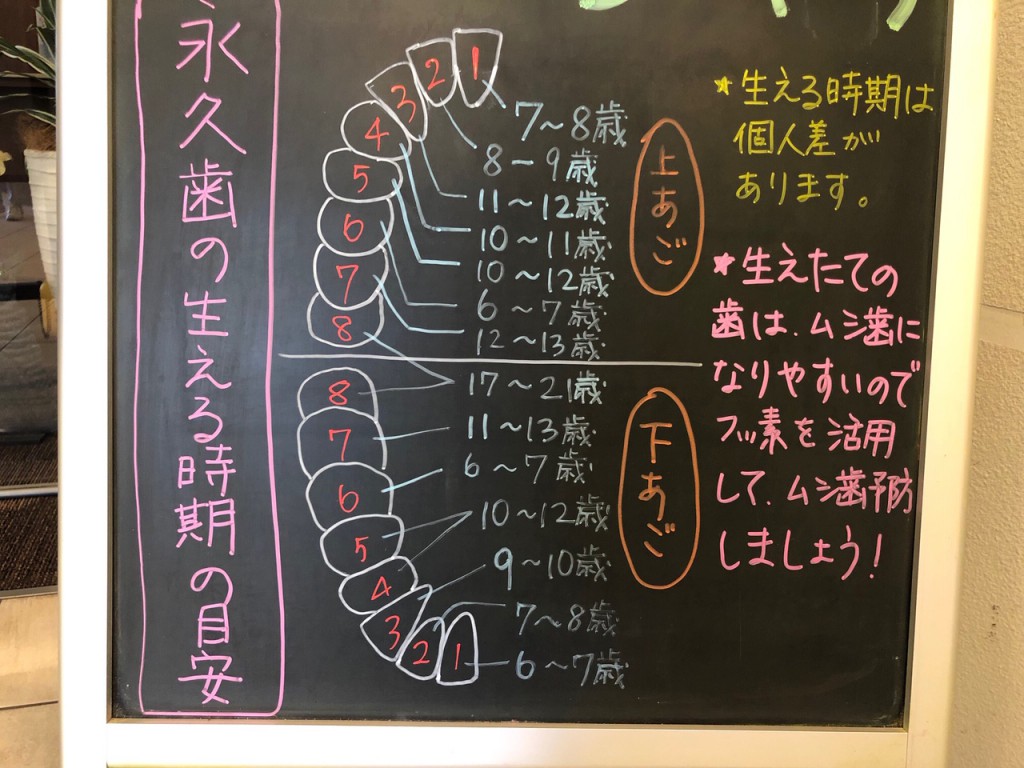 永久歯の生える時期の目安
1
2
3
4
5
6
7
8
7~8歳
8-9歳
11~12歳
10~11歳
10~12歳
6~7歳
12~13歳
上あご
8
7
6
5
4
3
2
1
17~21歳
11~13歳
6~7歳
10~12歳
9~10歳
7~8歳
6~7歳
下あご
★生える時期は
個人差が
あります。
★生えたての
歯は、ムシ歯に
なりやすいので
フッ素を活用
して、ムシ歯予防
しましょう!